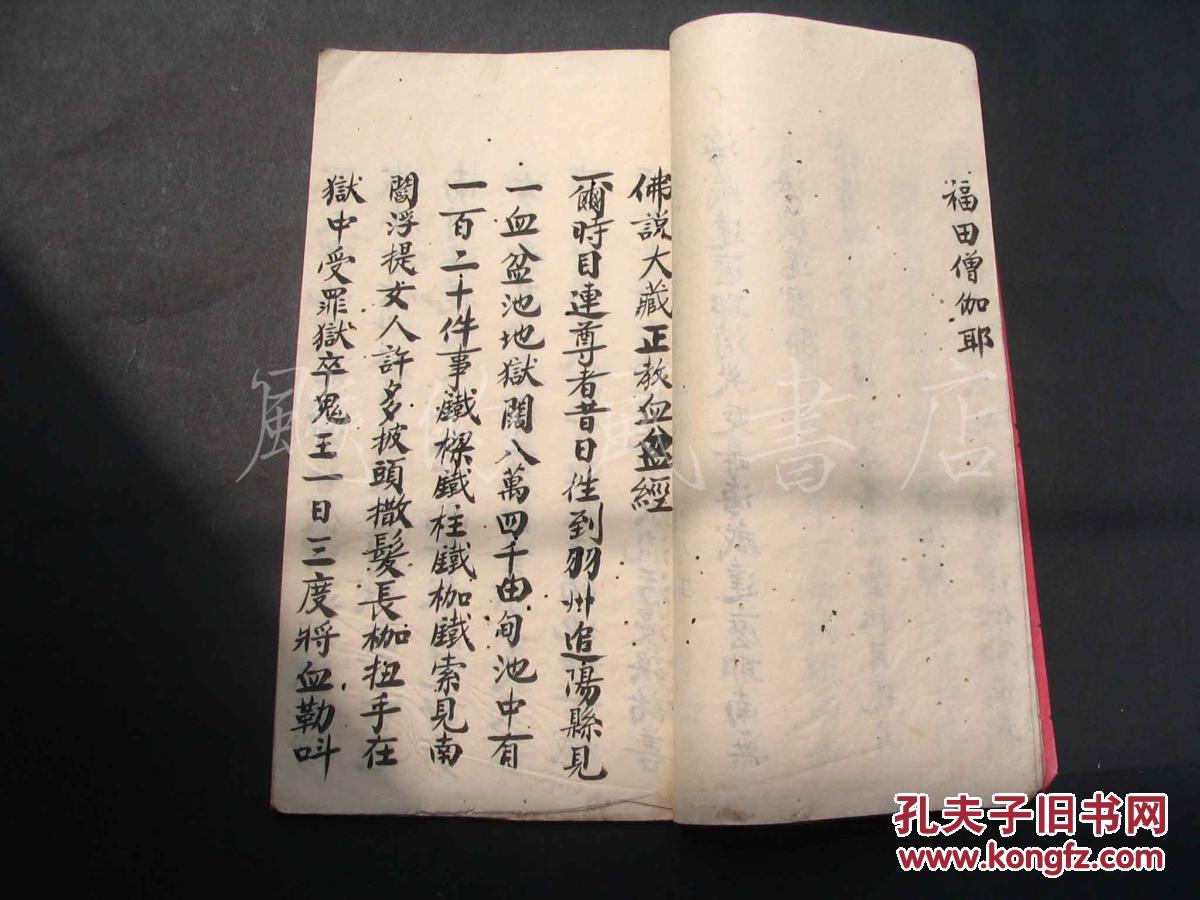 福田僧伽耶
佛説大藏正教血盆經
爾時目連尊者昔日徃到羽州追陽縣見
一血盆池地獄闊八萬四千由甸池中有
一百二十件事鐵樑鐵柱鐵枷鐵索見南
閻浮提女人許多披頭撒髮長枷扭手在
獄中受罪獄卒鬼王一日三度將血勒呌
藏書店
孔夫子旧书网
www.kongfz.com